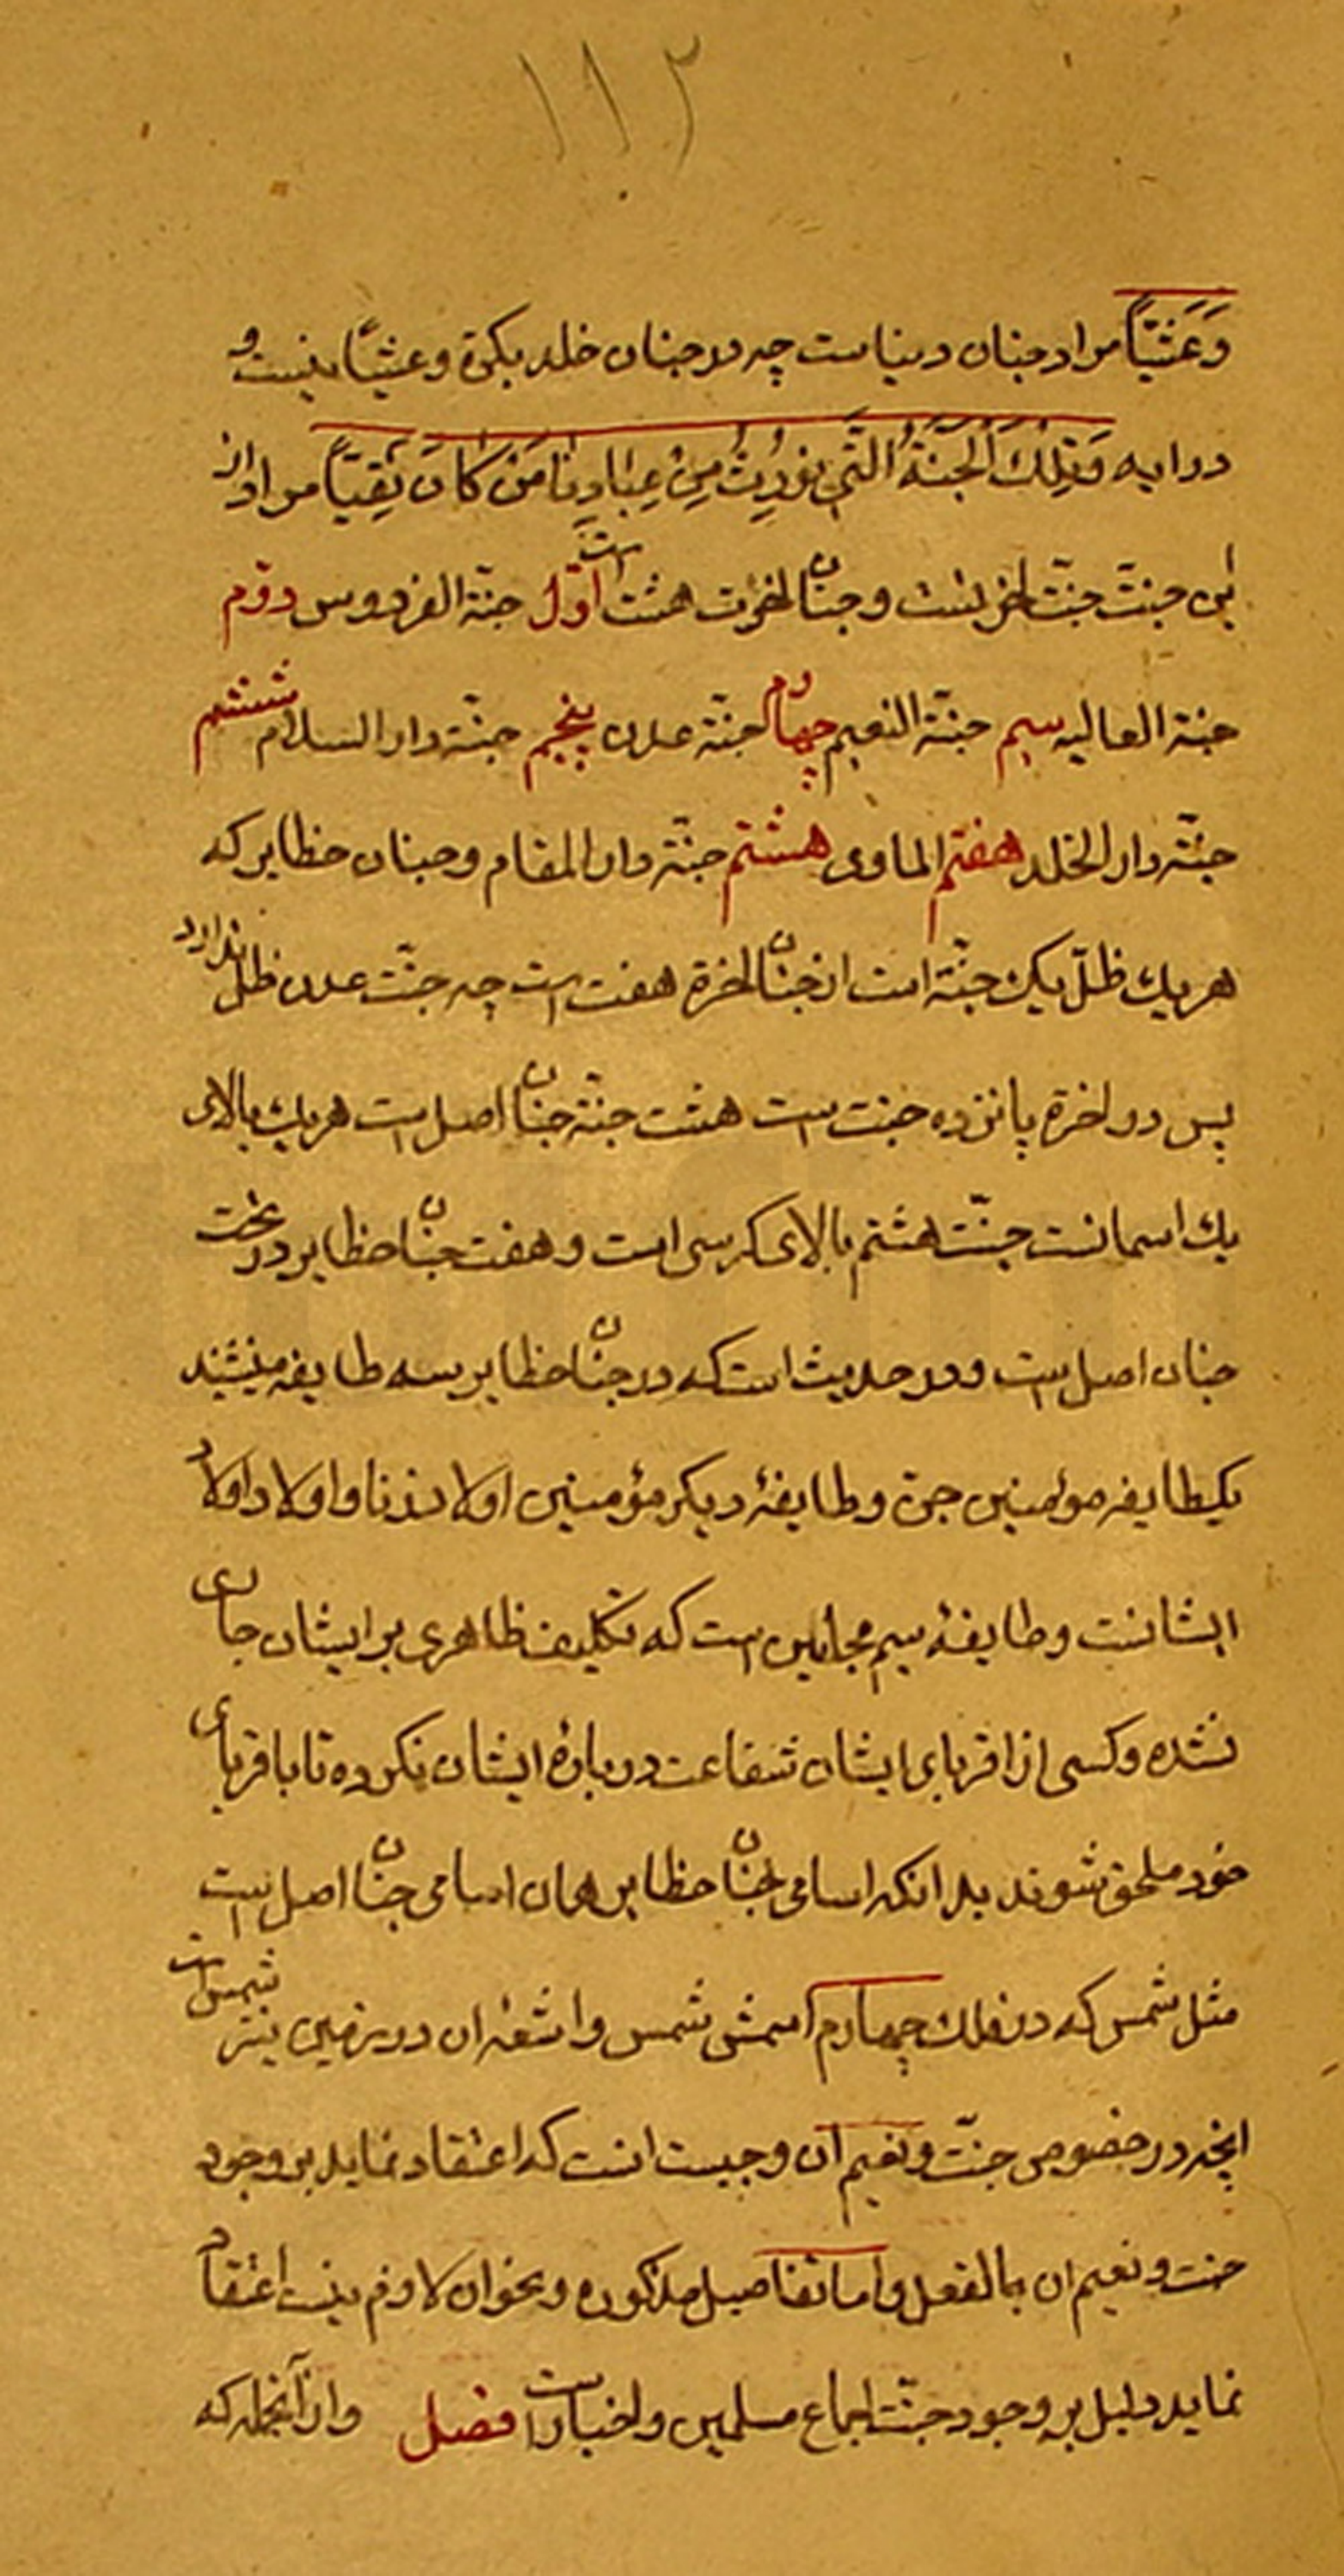 ١١٢
وَعَشَیّاً مراد جنان دنیاست چه در جنان خلد بکرة و عشیّاً نیست و
در ایه وَتِلكَ الجَنّةُ الّتی نُورِثُ مِنْ عِبادِنا مَنْ کانَ تَقِیّاً مراد از
این جنت جنّت اخر تست و جنان اخرت هشت است اوّل جنّة الفردوس دوّم
جنة العالیه سیم جنّة النعیم چهارم جنّة عدن پنجم جنّة دار السلام ششم
جنّة دار الخلد هفتم الماوی هشتم جنّة دار المقام و جنان حظایر که
هر یك ظلّ یک جنّة است از جنان اخرة هفت است چه جنّت عدن ظلّ ندارد
پس در اخرة پانزده جنت است هشت جنّة جنان اصل است هر یك بالای
یك اسمانست جنّت هشتم بالای کرسی است و هفت جنان حظایر در تحت
جنان اصل است و در حدیث است که در جنان حظایر سه طایفه میشینند
یکطایفه مومنین جنّ و طایفهٔ دیکر مؤمنین اولاد زنا و اولاد اولاد
ایشانست و طایفهٔ سیم مجانین است که تکلیف ظاهری بر ایشان جاری
نشده و کسی از اقربای ایشان شفاعت در بارهٔ ایشان نکرده تا باقربای
خود ملحق شوند بدانکه اسامی جنان حظایر همان اسامی جنان اصل است
مثل شمس که در فلك چهارم اسمش شمس و اشعهٔ ان در زمین نیز شمس است
انچه در خصوص جنّت و نعیم آن و جیست انست که اعتقاد نماید بر وجود
جنت و نعیم ان بالفعل و اما تفاصیل مذکوره و نحو ان لازم نیست اعتقاد
نماید دلیل بر وجود جنّت اجماع مسلمین و اخبار است فصل و از آنجمله که